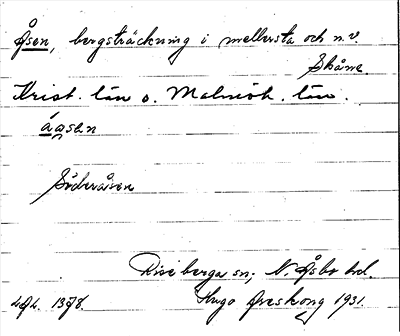 Åsen, bergsträckning i mellersta och n.v.
Skåne.
Krist. län o. Malmöh. län.
åasɘn
Söderåsen
Riseberga sn; N. Åsbo hd.
1378.
Hugo Areskoug 1931.